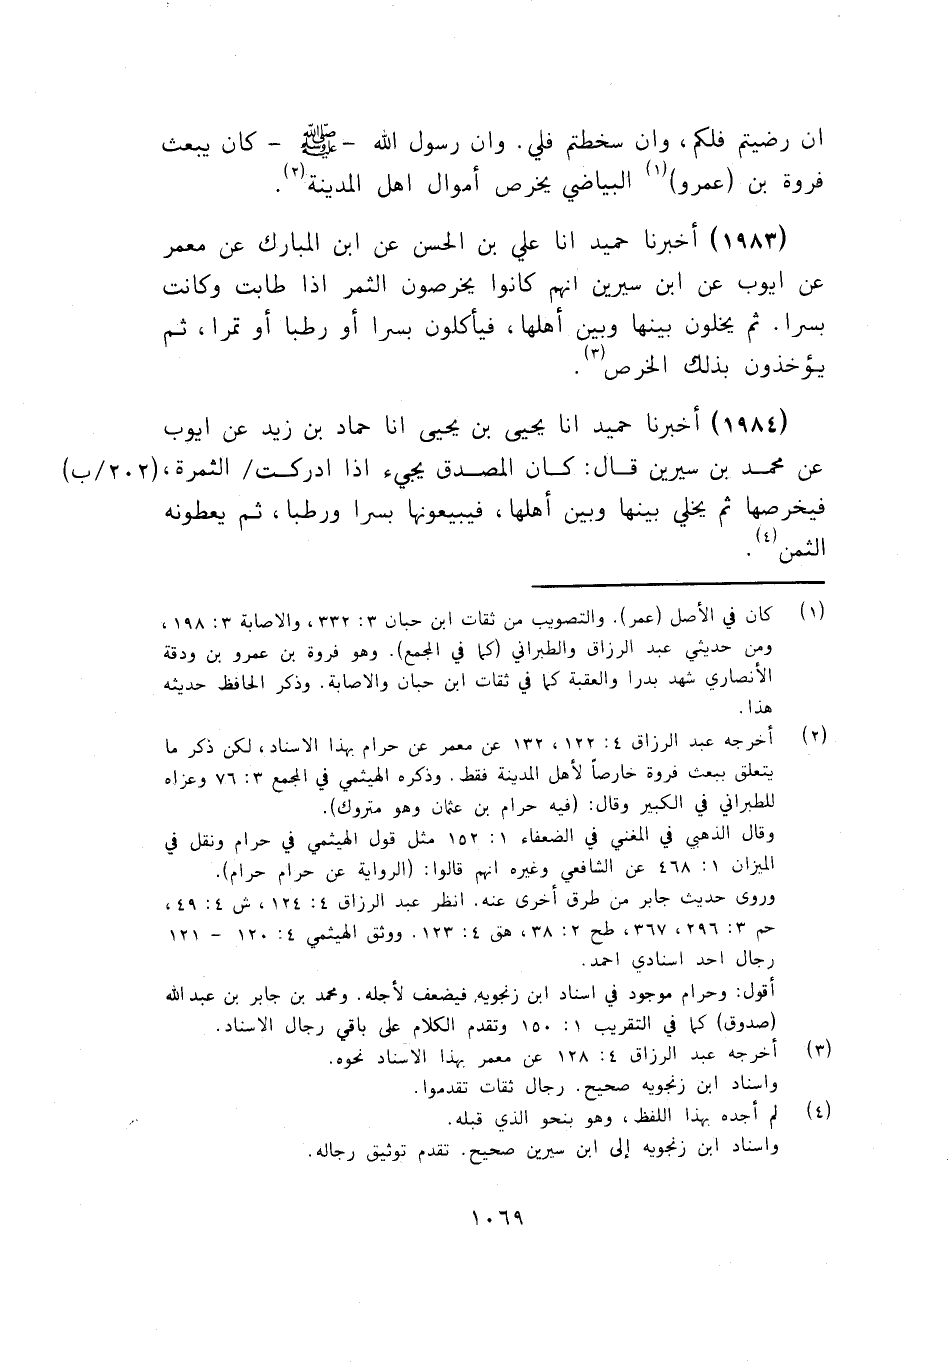 ان رضيتم فلكم ، وان سخطتم فلي . وان رسول الله - ﷺ - كان يبعث
فروة بن (عمرو)(١) البياضي يخرص أموال اهل المدينة(٢).
(١٩٨٣) أخبرنا حميد انا علي بن الحسن عن ابن المبارك عن معمر
عن ايوب عن ابن سيرين انهم كانوا يخرصون الثمر اذا طابت وكانت
بسرا . ثم يخلون بينها وبين أهلها ، فيأكلون بسرا أو رطبا أو تمرا ، ثم
يؤخذون بذلك الخرص(٣).
(١٩٨٤) أخبرنا حميد انا يحيى بن يحيى انا حماد بن زيد عن ايوب
عن محمد بن سيرين قال : كان المصدق يجيء اذا ادركت/ الثمرة ، (٢٠٢/ب)
فيخرصها ثم يخلي بينها وبين أهلها ، فيبيعونها بسرا ورطبا ، ثم يعطونه
الثمن(٤).
(١) كان في الأصل (عمر). والتصويب من ثقات ابن حبان ٣ : ٣٣٢ ، والاصابة ٣ : ١٩٨ ،
ومن حديثي عبد الرزاق والطبراني (كما في المجمع). وهو فروة بن عمرو بن ودقة
الأنصاري شهد بدرا والعقبة كما في ثقات ابن حبان والاصابة . وذكر الحافظ حديثه
هذا .
(٢) أخرجه عبد الرزاق ٤ : ١٢٢ ، ١٣٢ عن معمر عن حرام بهذا الاسناد ، لكن ذكر ما
يتعلق ببعث فروة خارصاً لأهل المدينة فقط . وذكره الهيثمي في المجمع ٣ : ٧٦ وعزاه
للطبراني في الكبير وقال : (فيه حرام بن عثمان وهو متروك).
وقال الذهبي في المغني في الضعفاء ١ : ١٥٢ مثل قول الهيثمي في حرام ونقل في
الميزان ١ : ٤٦٨ عن الشافعي وغيره انهم قالوا : (الرواية عن حرام حرام).
وروى حديث جابر من طرق أخرى عنه . انظر عبد الرزاق ٤ : ١٢٤ ، ش ٤ : ٤٩ ،
حم ٣ : ٢٩٦ ، ٣٦٧ ، طح ٢ : ٣٨ ، هق ٤ : ١٢٣ . ووثق الهيثمي ٤ : ١٢٠ - ١٢١
رجال احد اسنادي احمد .
أقول : وحرام موجود في اسناد ابن زنجويه, فيضعف لأجله . ومحمد بن جابر بن عبد الله
(صدوق) كما في التقريب ١ : ١٥٠ وتقدم الكلام على باقي رجال الاسناد .
(٣) أخرجه عبد الرزاق ٤ : ١٢٨ عن معمر بهذا الاسناد نحوه .
واسناد ابن زنجويه صحيح . رجال ثقات تقدموا .
(٤) لم أجده بهذا اللفظ ، وهو بنحو الذي قبله .
واسناد ابن زنجويه إلى ابن سيرين صحيح . تقدم توثيق رجاله .
١٠٦٩